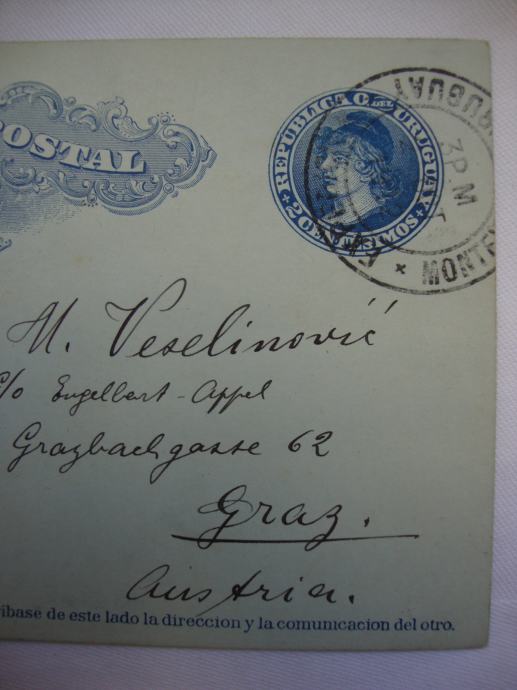 OSTAL
REPUBLICA O. DEL URUGUAY
2 CENTESIMOS
URUGUAY
3PM
* MONTEV
M. Veselinović
c/o Engelbert-Appel
Grazbachgasse 62
Graz.
Austria.
ribase de este lado la direccion y la comunicacion del otro.